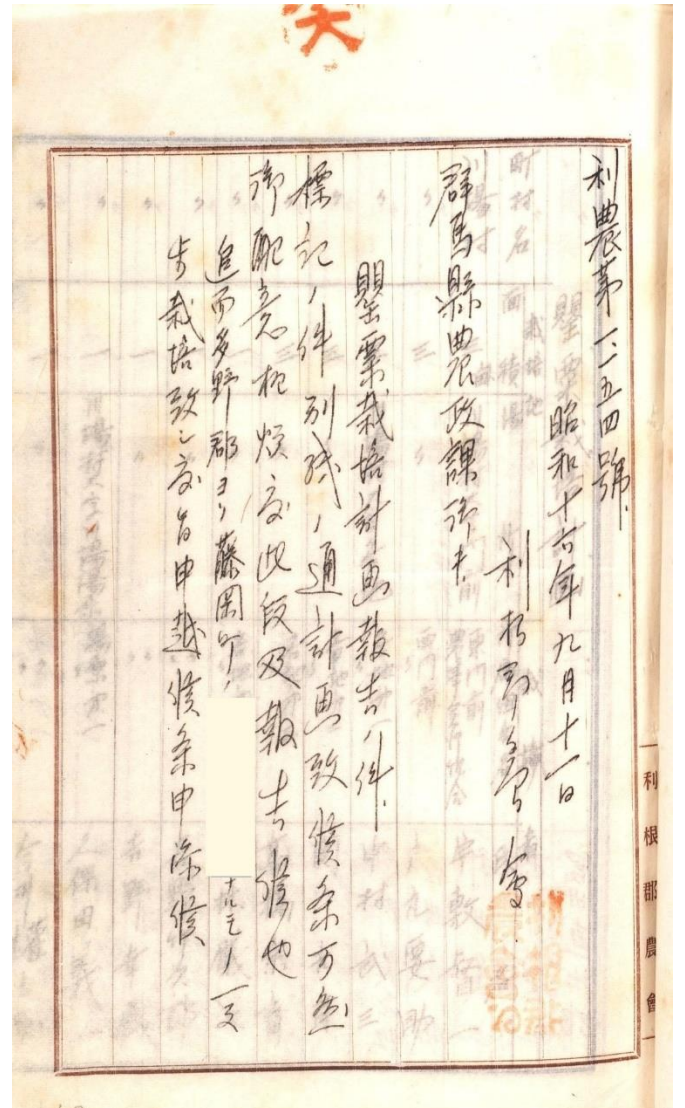 利農第一二五四號
昭和十六年九月十一日
利根郡農會
群馬縣農政課御中
罌粟栽培計画報告ノ件
標記ノ件別紙ノ通計画致候条可然
御配意相煩度此段及報告候也
追而多野郡ヨリ藤岡町ノ
歩栽培致シ度旨申越候条申添候
利根郡農會